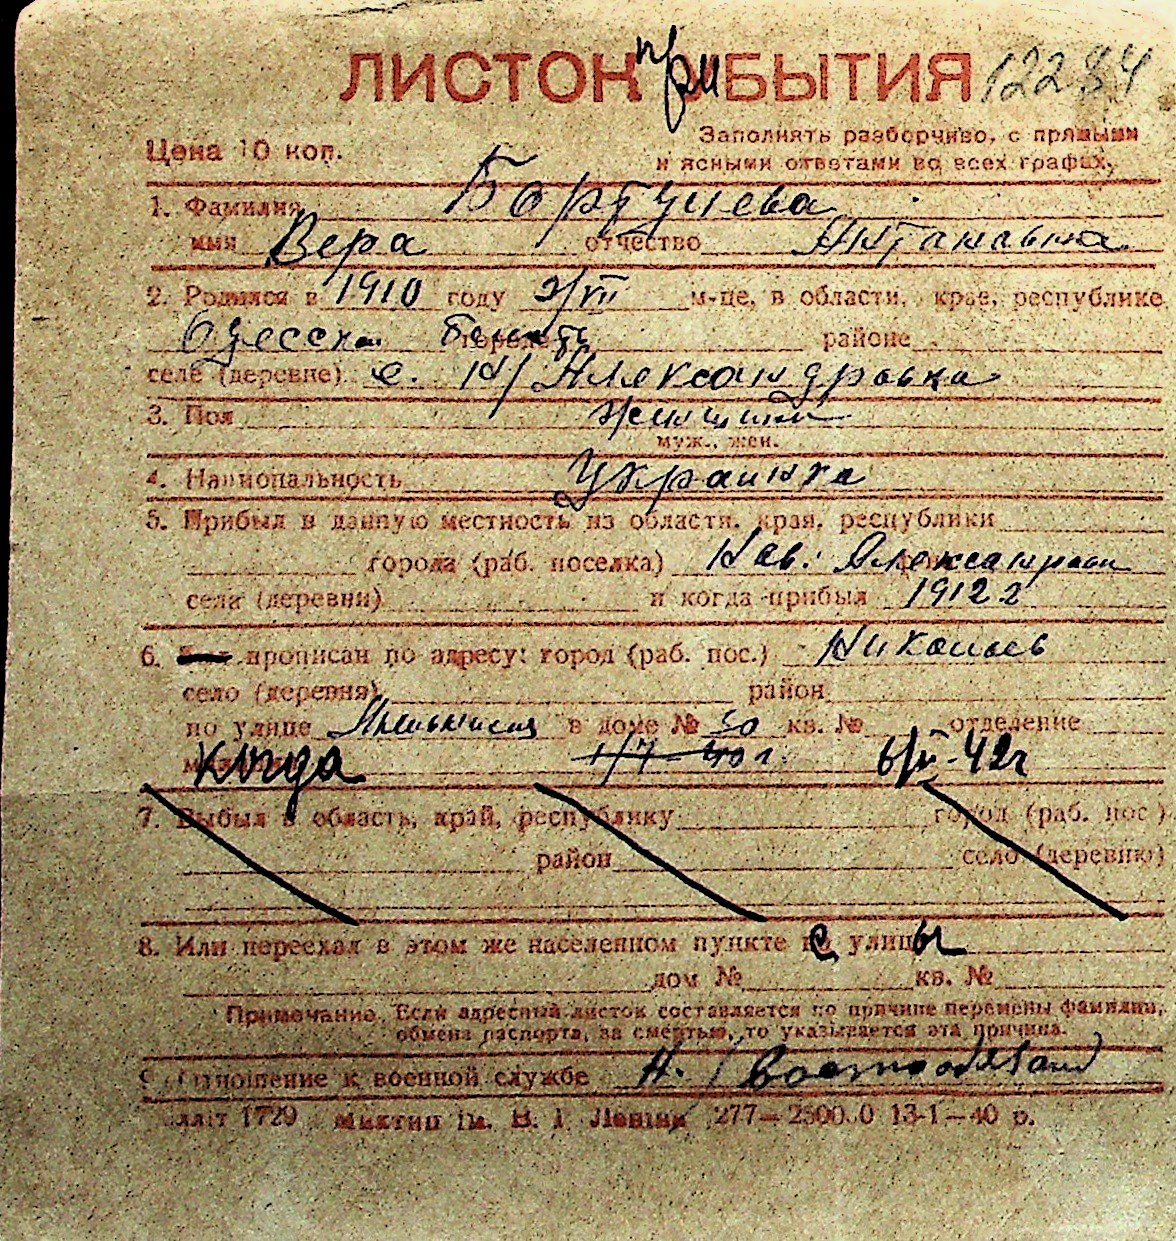 ЛИСТОК при БЫТИЯ 12284
Цена 10 коп. Заполнять разборчиво, с прямыми
и ясными ответами во всех графах,
1. Фамилия
имя Вера отчество
2. Родился в 1910 году м-це, в области, крае, республике
районе
селе (деревне) с. Н/Александровка
3. Пол
муж., жен.
4. Национальность Украинка
5. Прибыл в данную местность из области, края, республики
города (раб. поселка) Нов.
села (деревни) и когда прибыл 1912 г
6. прописан по адресу: город (раб. пос.) Николаев
село (деревня) район
по улице в доме № 50 кв. № отделение
Когда 42г
7. Выбыл в область, край, республику город (раб. пос.)
район село (деревню)
8. Или переехал в этом же населенном пункте с улицы
дом № кв. №
Примечание. Если адресный листок составляется по причине перемены фамилии,
обмена паспорта, за смертью, то указывается эта причина.
9. Отношение к военной службе
1729 Миктип ім. В. І. Леніна 277— 13-1—40 р.